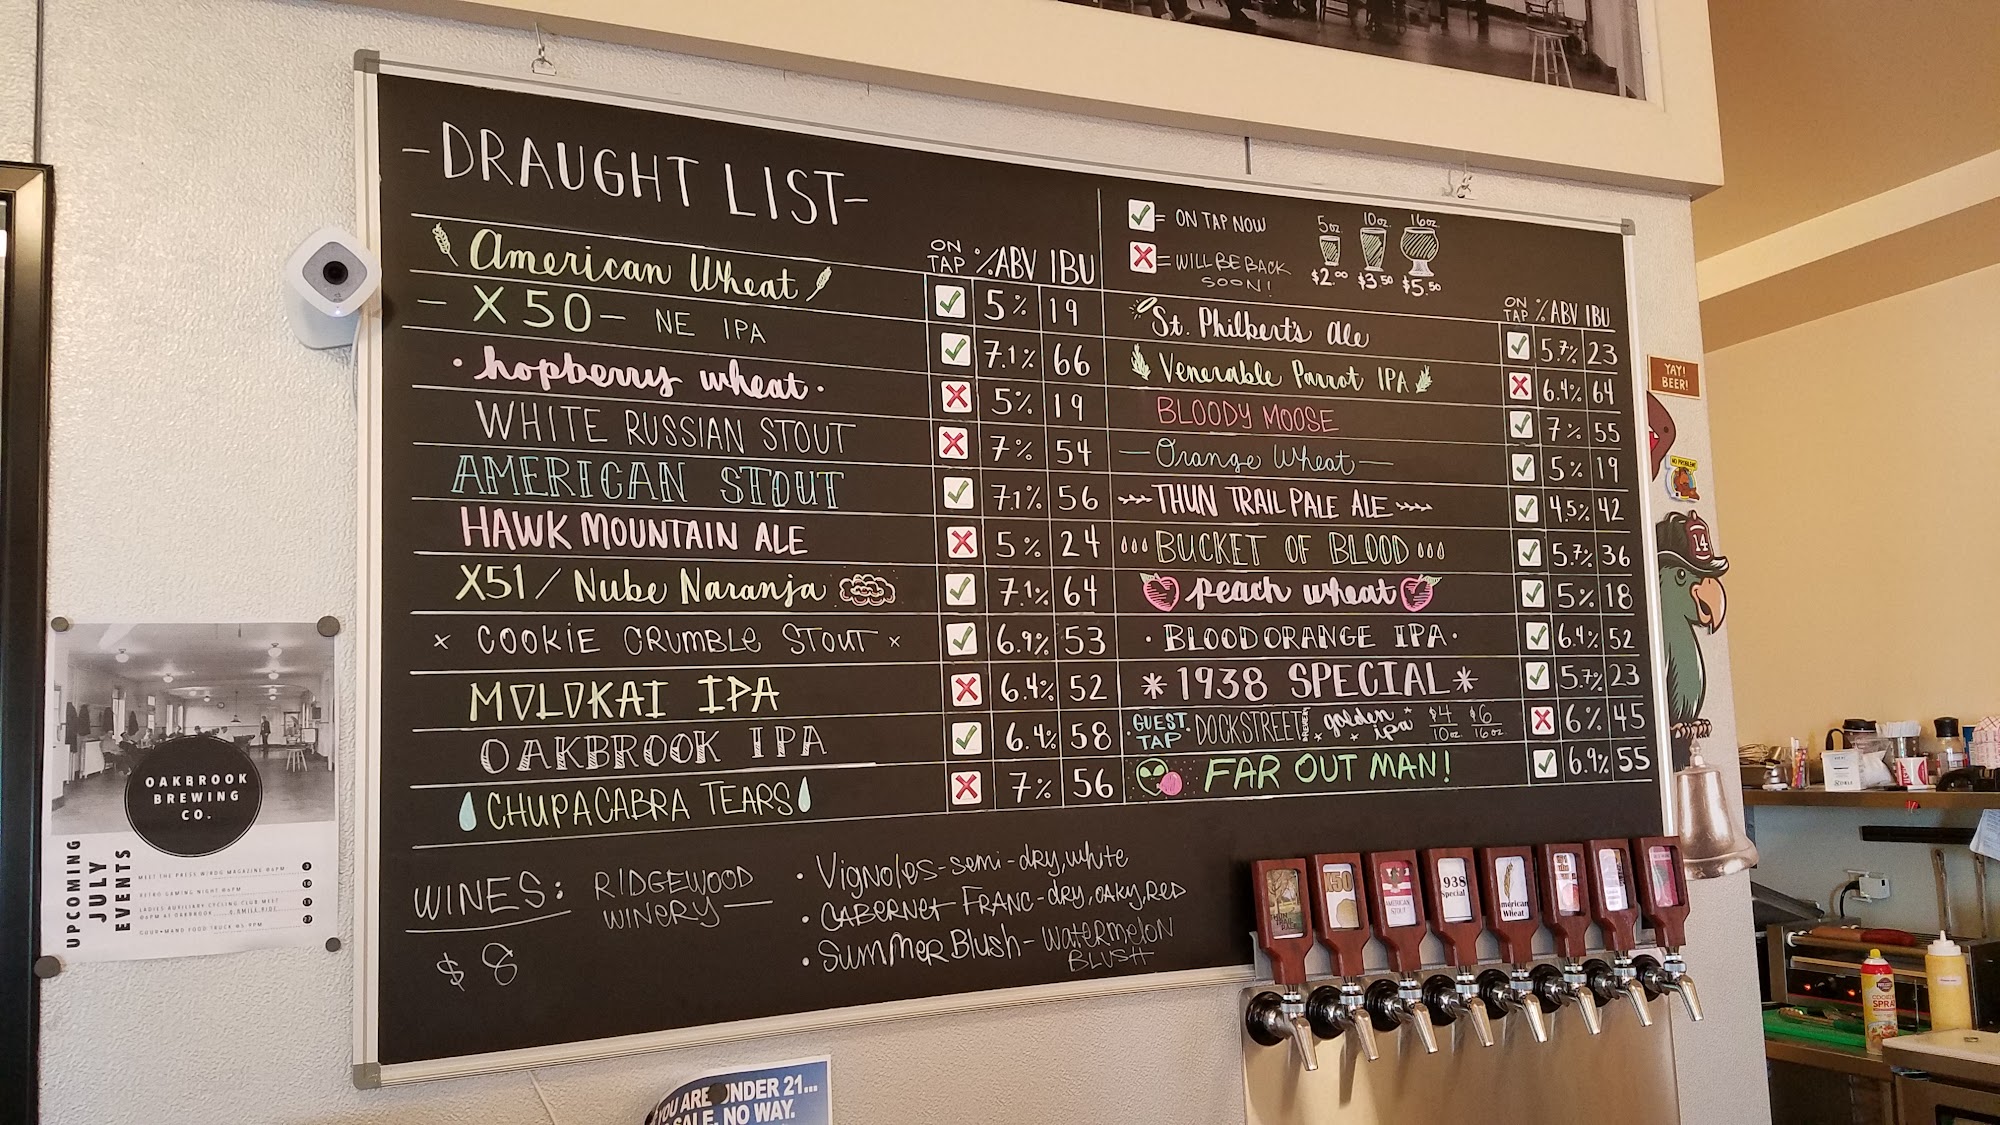 -DRAUGHT LIST-
ON TAP %ABV IBU
American Wheat 5% 19
- X50 - NE IPA 7.1% 66
• hopberry wheat • 5% 19
WHITE RUSSIAN STOUT 7% 54
AMERICAN STOUT 7.1% 56
HAWK MOUNTAIN ALE 5% 24
X51 / Nube Naranja 7.1% 64
x COOKIE CRUMBLE STOUT x 6.9% 53
MOLOKAI IPA 6.4% 52
OAKBROOK IPA 6.4% 58
CHUPACABRA TEARS 7% 56
= ON TAP NOW
= WILL BE BACK SOON!
5oz 10oz. 16oz.
$2.00 $3.50 $5.50
ON TAP % ABV IBU
St. Philbert's Ale 5.7% 23
Venerable Parrot IPA 6.4% 64
BLOODY MOOSE 7% 55
- Orange Wheat - 5% 19
THUN TRAIL PALE ALE 4.5% 42
BUCKET OF BLOOD 5.7% 36
peach wheat 5% 18
• BLOOD ORANGE IPA • 6.4% 52
* 1938 SPECIAL * 5.7% 23
• GUEST TAP • DOCKSTREET BREWERY golden ipa $4 10oz $6 16oz 6% 45
FAR OUT MAN! 6.9% 55
WINES:
$8
RIDGEWOOD
WINERY
• Vignoles-semi-dry, white
• CABERNET FRANC-dry, OAKY, RED
• Summer Blush-WATERMELON
BLUSH
OAKBROOK
BREWING
CO.
UPCOMING
JULY
EVENTS
MEET THE PRESS W/RDG MAGAZINE @6PM
RETRO GAMING NIGHT @6PM
LADIES AUXILIARY CYCLING CLUB MEET
@6PM AT OAKBROOK
GOUR•MAND FOOD TRUCK @5-9PM
YOU ARE UNDER 21...
SALE. NO WAY.
YAY!
BEER!
NO PROBLEM!
14
X50
AMERICAN
STOUT
1938
Special
American
Wheat
SPRAY